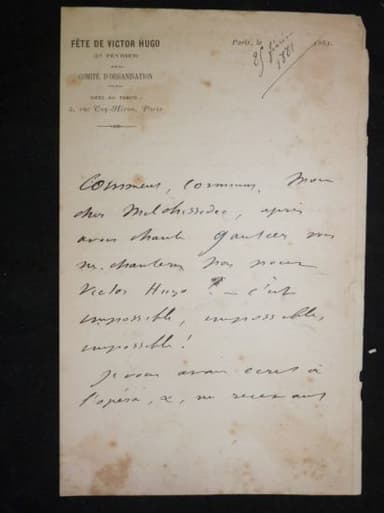 FÊTE DE VICTOR HUGO
27 FÉVRIER
COMITÉ D'ORGANISATION
5, rue Coq-Héron, Paris
Paris, le 25 février 1881
Comment, comment, mon
cher Melchissedec, après
avoir chanté Gautier vous
ne chanterez pas pour
Victor Hugo ? — c'est
impossible, impossible,
impossible !
Je vous avais écrit à
l'opéra, &, ne recevant